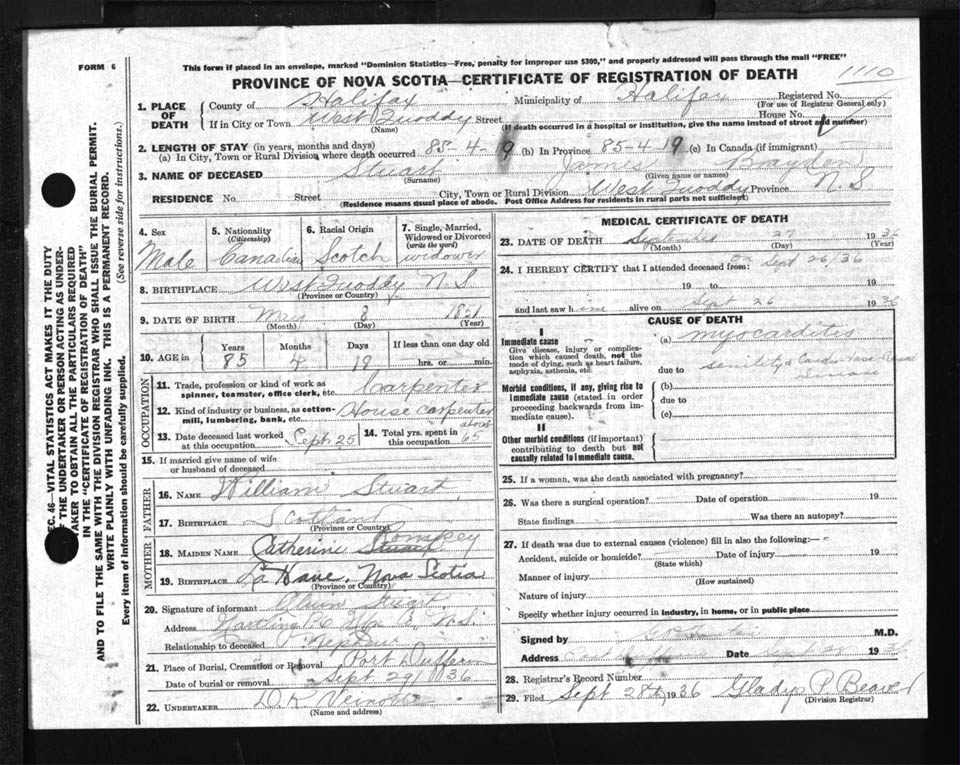 FORM 6
This form if placed in an envelope, marked "Dominion Statistics—Free, penalty for improper use $300," and properly addressed will pass through the mall "FREE"
PROVINCE OF NOVA SCOTIA—CERTIFICATE OF REGISTRATION OF DEATH
1110
1. PLACE OF DEATH County of Halifax Municipality of Halifax Registered No.
(For use of Registrar General only)
If in City or Town West Quoddy Street House No.
(Name) (If death occurred in a hospital or institution, give the name instead of street and number)
2. LENGTH OF STAY (in years, months and days)
(a) In City, Town or Rural Division where death occurred 85-4-19 (b) In Province 85-4 19 (c) In Canada (if immigrant)
3. NAME OF DECEASED Stuart James Brayden
(Surname) (Given name or names)
RESIDENCE No. Street City, Town or Rural Division West Quoddy Province N S
(Residence means usual place of abode. Post Office Address for residents in rural parts not sufficient)
SEC. 46—VITAL STATISTICS ACT MAKES IT THE DUTY
OF THE UNDERTAKER OR PERSON ACTING AS UNDER-
TAKER TO OBTAIN ALL THE PARTICULARS REQUIRED
IN THE "CERTIFICATE OF REGISTRATION OF DEATH"
AND TO FILE THE SAME WITH THE DIVISION REGISTRAR WHO SHALL ISSUE THE BURIAL PERMIT.
WRITE PLAINLY WITH UNFADING INK. THIS IS A PERMANENT RECORD.
Every item of information should be carefully supplied. (See reverse side for instructions.)
4. Sex Male
5. Nationality (Citizenship) Canadian
6. Racial Origin Scotch
7. Single, Married, Widowed or Divorced (write the word) widower
8. BIRTHPLACE West Quoddy N S
(Province or Country)
9. DATE OF BIRTH May 8 1851
(Month) (Day) (Year)
10. AGE in Years 85 Months 4 Days 19 If less than one day old
hrs. or min.
OCCUPATION
11. Trade, profession or kind of work as spinner, teamster, office clerk, etc. Carpenter
12. Kind of industry or business, as cotton-mill, lumbering, bank, etc. House carpenter
13. Date deceased last worked at this occupation Sept 25
14. Total yrs. spent in this occupation about 65
15. If married give name of wife or husband of deceased
FATHER
16. NAME William Stuart
17. BIRTHPLACE Scotland
(Province or Country)
MOTHER
18. MAIDEN NAME Catherine Stuart
19. BIRTHPLACE La Have, Nova Scotia
(Province or Country)
20. Signature of informant
Address N.S.
Relationship to deceased Nephew
21. Place of Burial, Cremation or Removal Port Dufferin
Date of burial or removal Sept 29/36
22. UNDERTAKER D. K
(Name and address)
MEDICAL CERTIFICATE OF DEATH
23. DATE OF DEATH September 27 1936
(Month) (Day) (Year)
24. I HEREBY CERTIFY that I attended deceased from: On Sept 26/36
19 to 19
and last saw him alive on Sept 26 1936
CAUSE OF DEATH
I
Immediate cause
Give disease, injury or complication which caused death, not the mode of dying, such as heart failure, asphyxia, asthenia, etc.
(a) myocarditis
due to senility & Cardio-Vasc-Renal Disease
Morbid conditions, if any, giving rise to immediate cause (stated in order proceeding backwards from immediate cause).
(b)
due to
(c)
II
Other morbid conditions (if important) contributing to death but not causally related to immediate cause.
25. If a woman, was the death associated with pregnancy?
26. Was there a surgical operation? Date of operation 19
State findings Was there an autopsy?
27. If death was due to external causes (violence) fill in also the following:—
Accident, suicide or homicide? Date of injury 19
(State which)
Manner of injury
(How sustained)
Nature of injury
Specify whether injury occurred in industry, in home, or in public place
Signed by M.D.
Address Port Dufferin Date Sept 28 1936
28. Registrar's Record Number
29. Filed Sept 28th 1936 Gladys P Beaver
(Division Registrar)